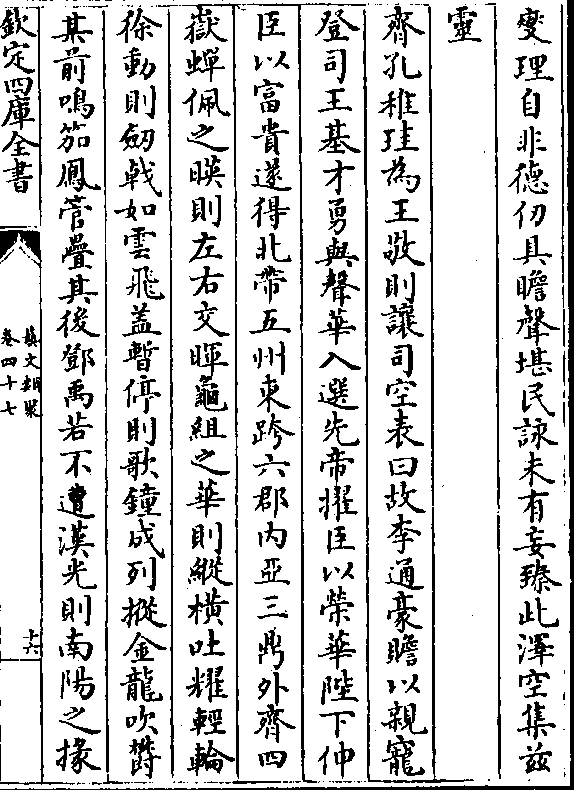 爕理自非德仞具瞻聲堪民詠未有妄臻此澤空集兹
靈
齊孔稚珪為王敬則讓司空表曰故李通豪贍以親寵
登司王基才勇與聲華入選先帝擢臣以榮華陛下仲
臣以富貴遂得北帶五州東跨六郡内亞三鼎外齊四
嶽蟬佩之暎則左右交暉龜組之華則縱横吐耀輕輪
徐動則劒㦸如雲飛盖暫停則歌鐘成列摐金龍吹欝
其前鳴笳鳳管疊其後鄧禹若不遭漢光則南陽之掾
欽定四庫全書
藝文類聚
卷四十七
十六